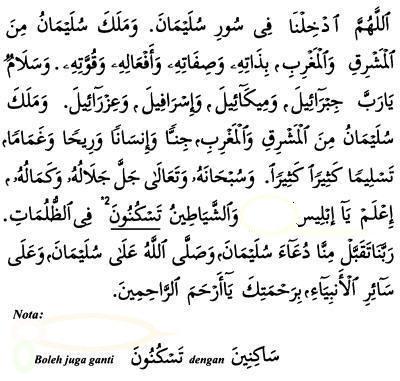 اَللّٰهُمَّ ٱدْخِلْنَا فِى سُورِ سُلَيْمَانَ. وَمَلَكَ سُلَيْمَانُ مِنَ
ٱلْمَشْرِقِ وَٱلْمَغْرِبِ، بِذَاتِهِۦ وَصِفَاتِهِۦ وَأَفْعَالِهِۦ وَقُوَّتِهِۦ. وَسَلَامٌ
يَارَبَّ جِبْرَآئِيلَ، وَمِيكَآئِيلَ، وَإِسْرَافِيلَ، وَعِزْرَآئِيلَ. وَمَلَكَ
سُلَيْمَانُ مِنَ ٱلْمَشْرِقِ وَٱلْمَغْرِبِ، جِنًّا وَإِنسَانًا وَرِيحًا وَغَمَامًا،
تَسْلِيمًا كَثِيرًا كَثِيرًا. وَسُبْحَانَهُ، وَتَعَالَى جَلَّ جَلَالُهُ، وَكَمَالُهُ،
إِعْلَمْ يَآ إِبْلِيس وَالشَّيَاطِينُ تَسْكُنُونَ²* فِى ٱلظُّلُمَاتِ.
رَبَّنَا تَقَبَّلْ مِنَّا دُعَآءَ سُلَيْمَانَ، وَصَلَّى ٱللَّهُ عَلَىٰ سُلَيْمَانَ، وَعَلَى
سَآئِرِ ٱلْأَنبِيَآءِ، بِرَحْمَتِكَ يَآأَرْحَمَ ٱلرَّاحِمِينَ.
Nota:
Boleh juga ganti تَسْكُنُونَ dengan سَاكِنِينَ